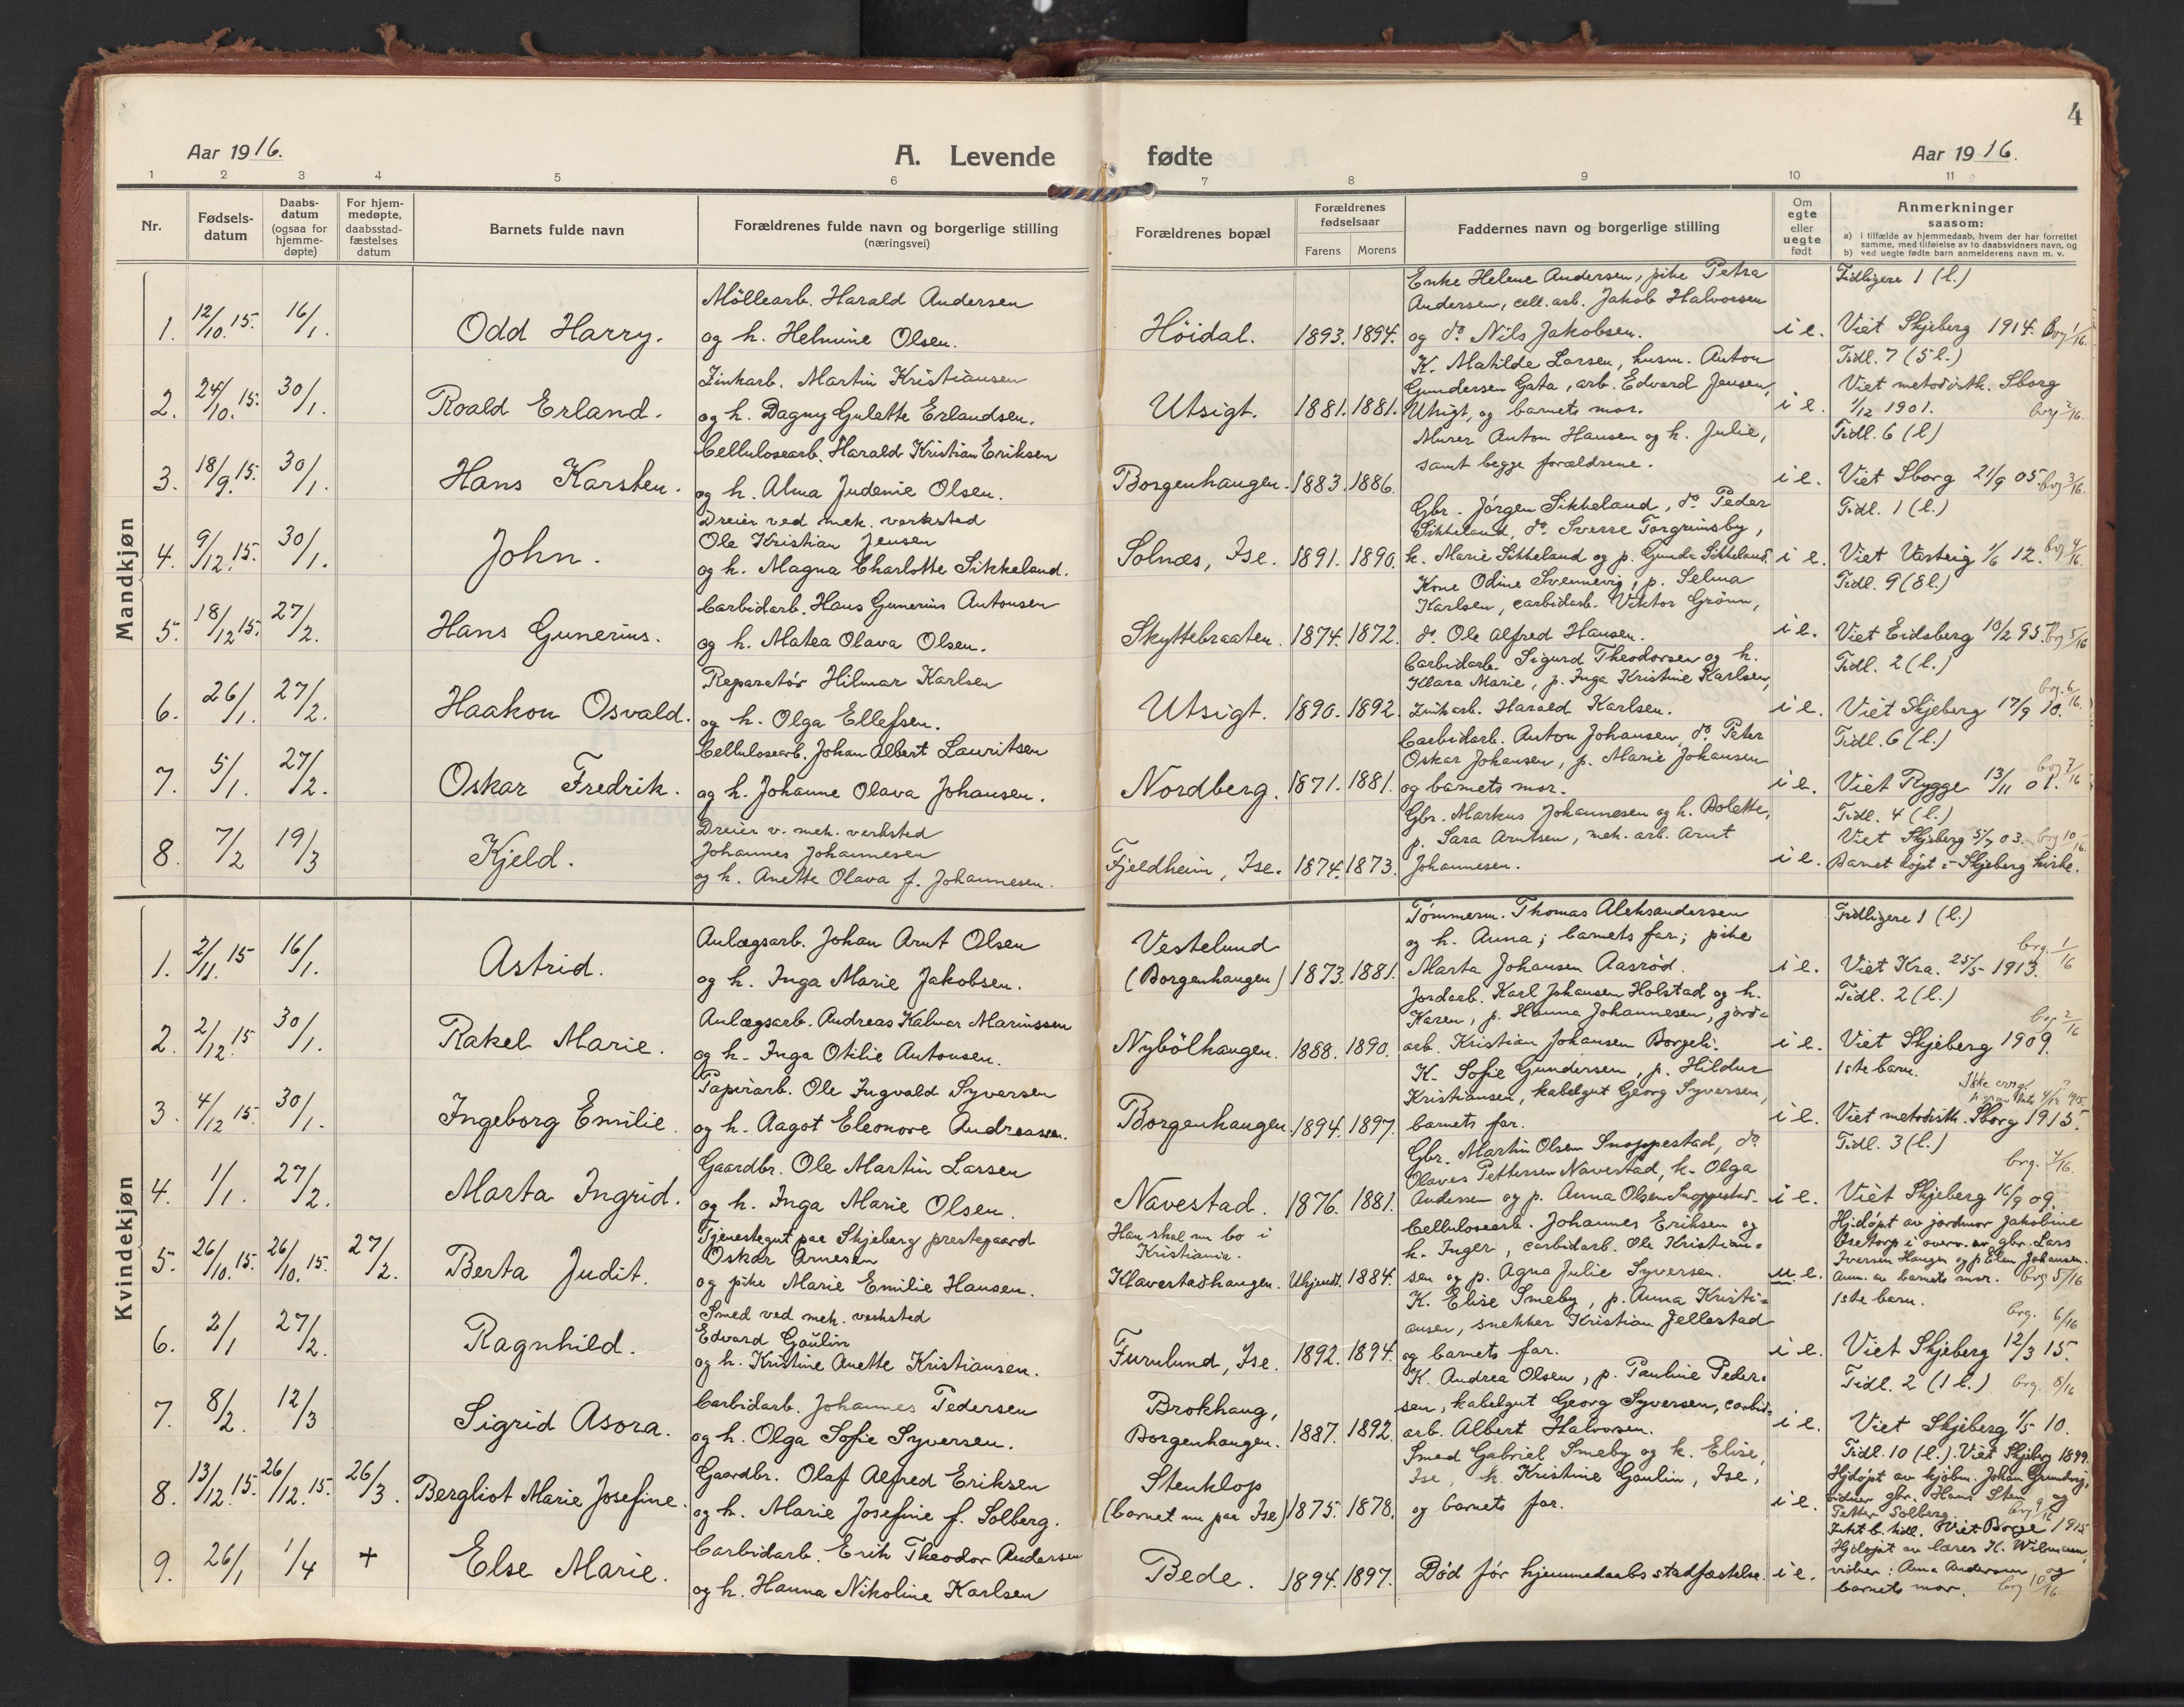 4
Aar 1916.
A. Levende fødte
Aar 1916.
1 2 3 4 5 6 7 8 9 10 11
Nr.
Fødsels-
datum
Daabs-
datum
(ogsaa for
hjemme-
døpte)
For hjem-
medøpte,
daabsstad-
fæstelses
datum
Barnets fulde navn
Forældrenes fulde navn og borgerlige stilling
(næringsvei)
Forældrenes bopæl
Forældrenes
fødselsaar
Farens Morens
Faddernes navn og borgerlige stilling
Om
egte
eller
uegte
født
Anmerkninger
saasom:
a) i tilfælde av hjemmedaab, hvem der har forrettet
samme, med tilføielse av to daabsvidners navn, og
b) ved uegte fødte barn anmelderens navn m. v.
Mandkjøn
1. 12/10. 15. 16/1.
Odd Harry.
Möllearb. Harald Andersen
og h. Helmine Olsen.
Höidal. 1893. 1894.
Enke Helene Andersen, pike Petra
Andersen, cell. arb. Jakob Halvorsen
og do Nils Jakobsen.
i e.
Tidligere 1 (l.)
Viet Skjeberg 1914. brg 1/16.
2. 24/10. 15. 30/1.
Roald Erland.
Zinkarb. Martin Kristiansen
og h. Dagny Gulette Erlandsen.
Utsigt. 1881. 1881.
K. Matilde Larsen, husm. Anton
Gundersen Gata, arb. Edvard Jensen,
Utsigt, og barnets mor.
i e.
Tidl. 7 (5 l.)
Viet metodistk. Sborg
1/12 1901. brg 2/16.
3. 18/9. 15. 30/1.
Hans Karsten.
Cellulosearb. Harald Kristian Eriksen
og h. Alma Judenie Olsen.
Borgenhaugen. 1883. 1886.
Murer Anton Hansen og h. Julie,
samt begge forældrene.
i e.
Tidl. 6 (l)
Viet Sborg 21/9 05. brg 3/16.
4. 9/12. 15. 30/1.
John.
Dreier ved mek. verksted
Ole Kristian Jensen
og h. Magna Charlotte Sikkeland.
Solnæs, Ise. 1891. 1890.
Gbr. Jörgen Sikkeland, do Peder
Sikkeland, do Sverre Torgrimsby,
k. Marie Sikkeland og p. Gunda Sikkeland.
i e.
Tidl. 1 (l.)
Viet Varteig 1/6 12. brg 4/16.
5. 18/12 15. 27/2.
Hans Gunerius.
Carbidarb. Hans Gunerius Antonsen
og h. Matea Olava Olsen.
Skyttebraaten. 1874. 1872.
Kone Odine Svennevig, p. Selma
Karlsen, carbidarb. Viktor Grönn,
do. Ole Alfred Hansen.
i e.
Tidl. 9 (8 l.)
Viet Eidsberg 10/2 95. brg 5/16
6. 26/1. 27/2.
Haakon Osvald.
Reparatör Hilmar Karlsen
og h. Olga Ellefsen.
Utsigt. 1890. 1892.
Carbidarb. Sigurd Theodorsen og h.
Klara Marie, p. Inga Kristine Karlsen,
Zinkarb. Harald Karlsen.
i e.
Tidl. 2 (l.)
Viet Skjeberg 17/9 10. brg. 6/16.
7. 5/1. 27/2.
Oskar Fredrik.
Cellulosearb. Johan Albert Lauritsen
og h. Johanne Olava Johansen.
Nordberg. 1871. 1881.
Carbidarb. Anton Johansen, do. Peter
Oskar Johansen, p. Marie Johansen
og barnets mor.
i e.
Tidl. 6 (l.)
Viet Rygge 13/11 01. brg 7/16
8. 7/2 19/3
Kjeld.
Dreier v. mek. verksted
Johannes Johannesen
og h. Anette Olava f. Johannesen.
Fjeldheim, Ise. 1874. 1873.
Gbr. Markus Johannesen og h. Bolette,
p. Sara Arntsen, mek. arb. Arnt
Johannesen.
i e.
Tidl. 4 (l.)
Viet Skjeberg 5/7 03. brg 10/16.
Barnet döpt i Skjeberg kirke.
Kvindekjøn
1. 2/11. 15 16/1.
Astrid.
Anlægsarb. Johan Arnt Olsen
og h. Inga Marie Jakobsen.
Vestelund
(Borgenhaugen) 1873. 1881.
Tömmerm. Thomas Aleksandersen
og h. Anna; barnets far; pike
Marta Johansen Aasröd.
i e.
Tidligere 1 (l.)
Viet Kra. 25/5 1913. brg. 1/16
2. 2/12. 15 30/1.
Rakel Marie.
Anlægsarb. Andreas Kalmar Marinssen
og h. Inga Otilie Antonsen.
Nybölhaugen. 1888. 1890.
Jordarb. Karl Johansen Holstad og h.
Karen, p. Hanna Johannesen, jord-
arb. Kristian Johansen Borgeli.
i e.
Tidl. 2 (l.)
Viet Skjeberg 1909. brg 2/16
3. 4/12 15. 30/1.
Ingeborg Emilie.
Papirarb. Ole Ingvald Syversen
og h. Aagot Eleonore Andreassen.
Borgenhaugen 1894. 1897.
K. Sofie Gundersen, p. Hildur
Kristiansen, kabelgut Georg Syversen,
barnets far.
i e.
1ste barn.
Viet metodistk. Sborg 1915.
4. 1/1. 27/2.
Marta Ingrid.
Gaardbr. Ole Martin Larsen
og h. Inga Marie Olsen.
Navestad. 1876. 1881.
Gbr. Martin Olsen Snoppestad, do
Olaves Pettersen Navestad, k. Olga
Andersen og p. Anna Olsen Snoppestad.
i e.
Tidl. 3 (l.)
brg. 4/16.
Viet Skjeberg 16/9 09.
5. 26/10. 15. 26/10. 15. 27/2.
Berta Judit.
Tjenestegut paa Skjeberg prestegaard
Oskar Arnesen
og pike Marie Emilie Hansen.
Han skal nu bo i
Kristiania.
Klavestadhaugen. Ukjendt. 1884.
Cellulosearb. Johannes Eriksen og
k. Inger, carbidarb. Ole Kristian-
sen og p. Agna Julie Syversen.
u e.
Hjdöpt av jordmor Jakobine
Osetorp i overv. av gbr. Lars
Iversen Haugen og p Elen Johansen.
Anm. av barnets mor. brg 5/16
6. 2/1 27/2.
Ragnhild.
Smed ved mek. verksted
Edvard Gaulin
og h. Kristine Anette Kristiansen.
Furulund, Ise. 1892. 1894.
K. Elise Smeby, p. Anna Kristi-
ansen, snekker Kristian Jellestad
og barnets far.
i e.
1ste barn.
brg. 6/16
Viet Skjeberg 12/3 15.
7. 8/2. 12/3
Sigrid Asora.
Carbidarb. Johannes Pedersen
og h. Olga Sofie Syversen.
Brokhaug,
Borgenhaugen. 1887. 1892.
K. Andrea Olsen, p. Pauline Peder-
sen, kabelgut Georg Syversen, carbid-
arb. Albert Halvorsen.
i e.
Tidl. 2 (1 l.) brg. 8/16
Viet Skjeberg 1/5 10.
8. 13/12. 15. 26/12. 15. 26/3.
Bergliot Marie Josefine.
Gaardbr. Olaf Alfred Eriksen
og h. Marie Josefine f. Solberg.
Stenklop
(barnet nu paa Ise) 1875. 1878.
Smed Gabriel Smeby og k. Elise,
Ise, k. Kristine Gaulin, Ise,
og barnets far.
i e.
Tidl. 10 (l.). Viet Skjeberg 1899.
Hjdöpt av kjöbm. Johan Grundvig,
vidner gbr. Hans Sten og
Petter Solberg. brg 9/16
9. 26/1 1/4 +
Else Marie.
Carbidarb. Erik Theodor Andersen
og h. Hanna Nikoline Karlsen
Bede. 1894. 1897.
Död för hjemmedaabsstadfæstelse.
i e.
Intet b. tidl. Viet Borge 1915
Hjdöpt av lærer K. Wilmann,
vidner: Anna Andersen og
barnets mor. brg 10/16.